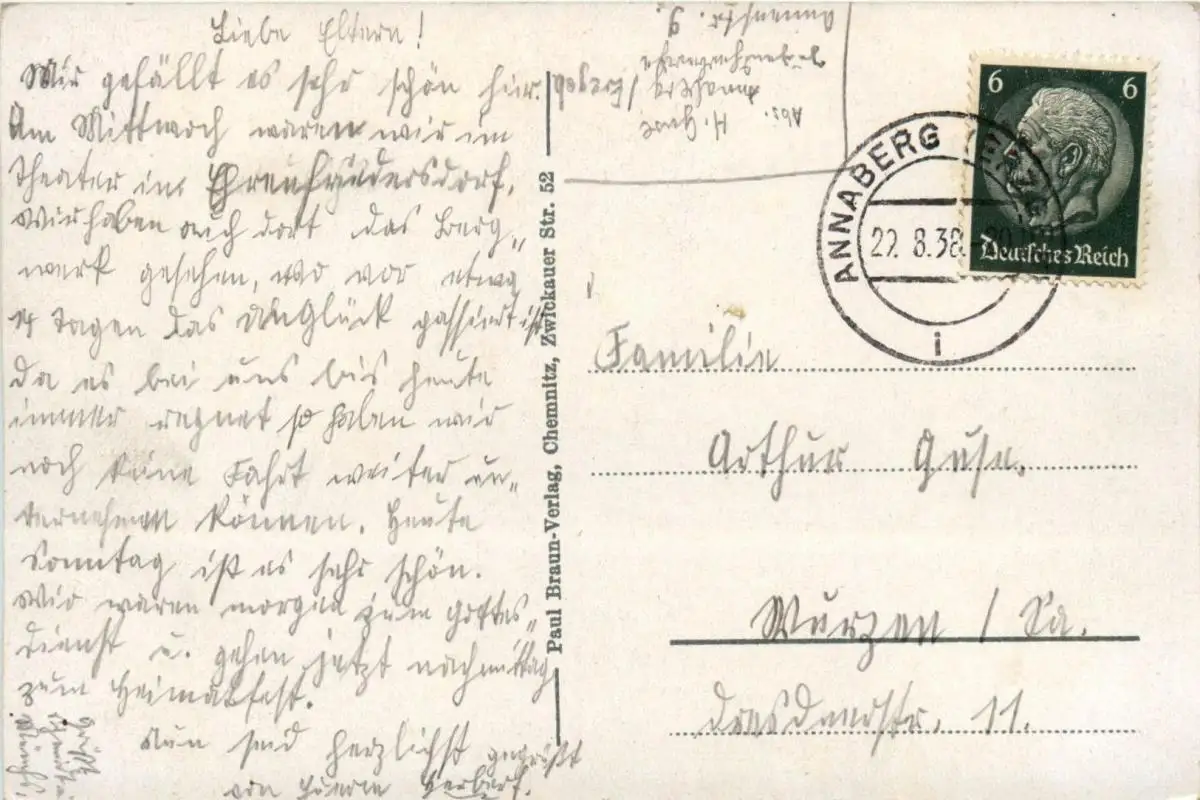 Liebe Eltern!
Mir gefällt es sehr schön hier.
Am Mittwoch waren wir im
Theater in Ehrenfriedersdorf.
Wir haben auch dort das Berg„
werk gesehen, wo vor etwa
14 Tagen das Unglück passiert ist
Da es bei uns bis heute
immer regnet so haben wir
noch keine Fahrt weiter un„
ternehmen können. Heute
Sonntag ist es sehr schön.
Wir waren morgen zum Gottes„
dienst u. gehen jetzt nachmittag
zum Heimatfest.
Nun seid herzlichst gegrüßt
von Euerm Herbert.
Abs.
H. Guse
Annaberg / Erzgeb
9.
Paul Braun-Verlag, Chemnitz, Zwickauer Str. 52
6 6
Deutsches Reich
ANNABERG (ERZG
22. 8.38
i
Familie
Arthur Guse.
Wurzen / Sa.
Dresdnerstr. 11.